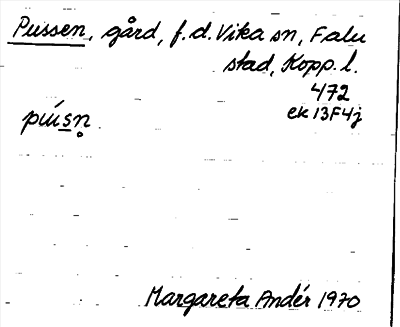 Pussen, gård, f.d. Vika sn, Falu
stad, Kopp. l.
472
ek 13F4j
Margareta Andér 1970